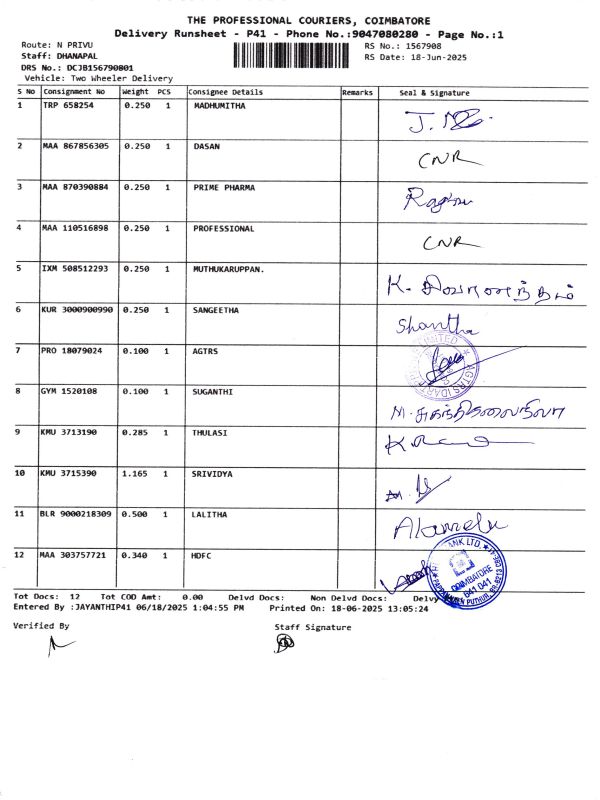 THE PROFESSIONAL COURIERS, COIMBATORE
Delivery Runsheet - P41 - Phone No.:9047080280 - Page No.:1
Route: N PRIVU RS No.: 1567908
Staff: DHANAPAL RS Date: 18-Jun-2025
DRS No.: DCJB156790801
Vehicle: Two Wheeler Delivery
S No Consignment No Weight PCS Consignee Details Remarks Seal & Signature
1 TRP 658254 0.250 1 MADHUMITHA
2 MAA 867856305 0.250 1 DASAN CNR
3 MAA 870390884 0.250 1 PRIME PHARMA Raghu
4 MAA 110516898 0.250 1 PROFESSIONAL CNR
5 IXM 508512293 0.250 1 MUTHUKARUPPAN. K. சிவானந்தம்
6 KUR 3000900990 0.250 1 SANGEETHA Shantha
7 PRO 18079024 0.100 1 AGTRS
8 GYM 1520108 0.100 1 SUGANTHI
9 KMU 3713190 0.285 1 THULASI
10 KMU 3715390 1.165 1 SRIVIDYA
11 BLR 9000218309 0.500 1 LALITHA Alamelu
12 MAA 303757721 0.340 1 HDFC
BANK LTD. COIMBATORE 641 041
Tot Docs: 12 Tot COD Amt: 0.00 Delvd Docs: Non Delvd Docs: Delvy
Entered By :JAYANTHIP41 06/18/2025 1:04:55 PM Printed On: 18-06-2025 13:05:24
Verified By Staff Signature